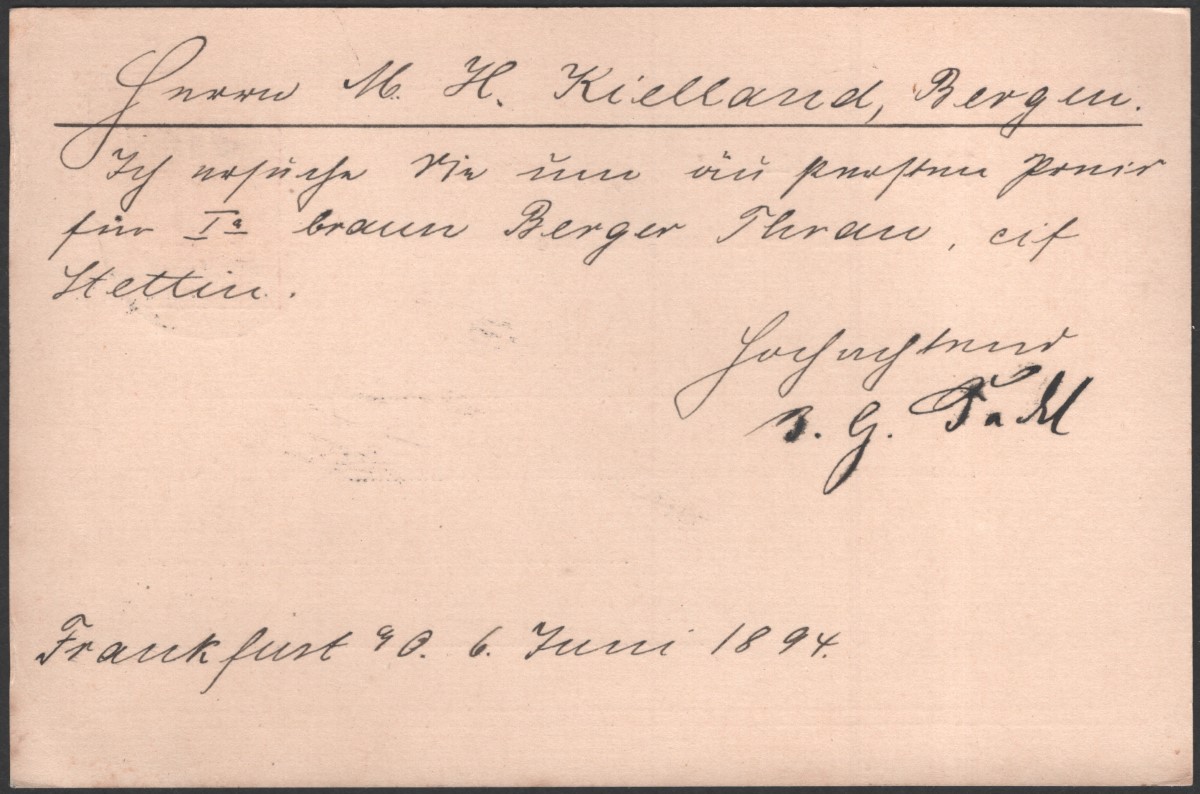 Herrn M. H. Kielland, Bergen.
Ich ersuche Sie um äußersten Preis
für Ia braun Berger Thran, cif
Stettin.
Hochachtend
G.
Frankfurt a/O. 6. Juni 1894.